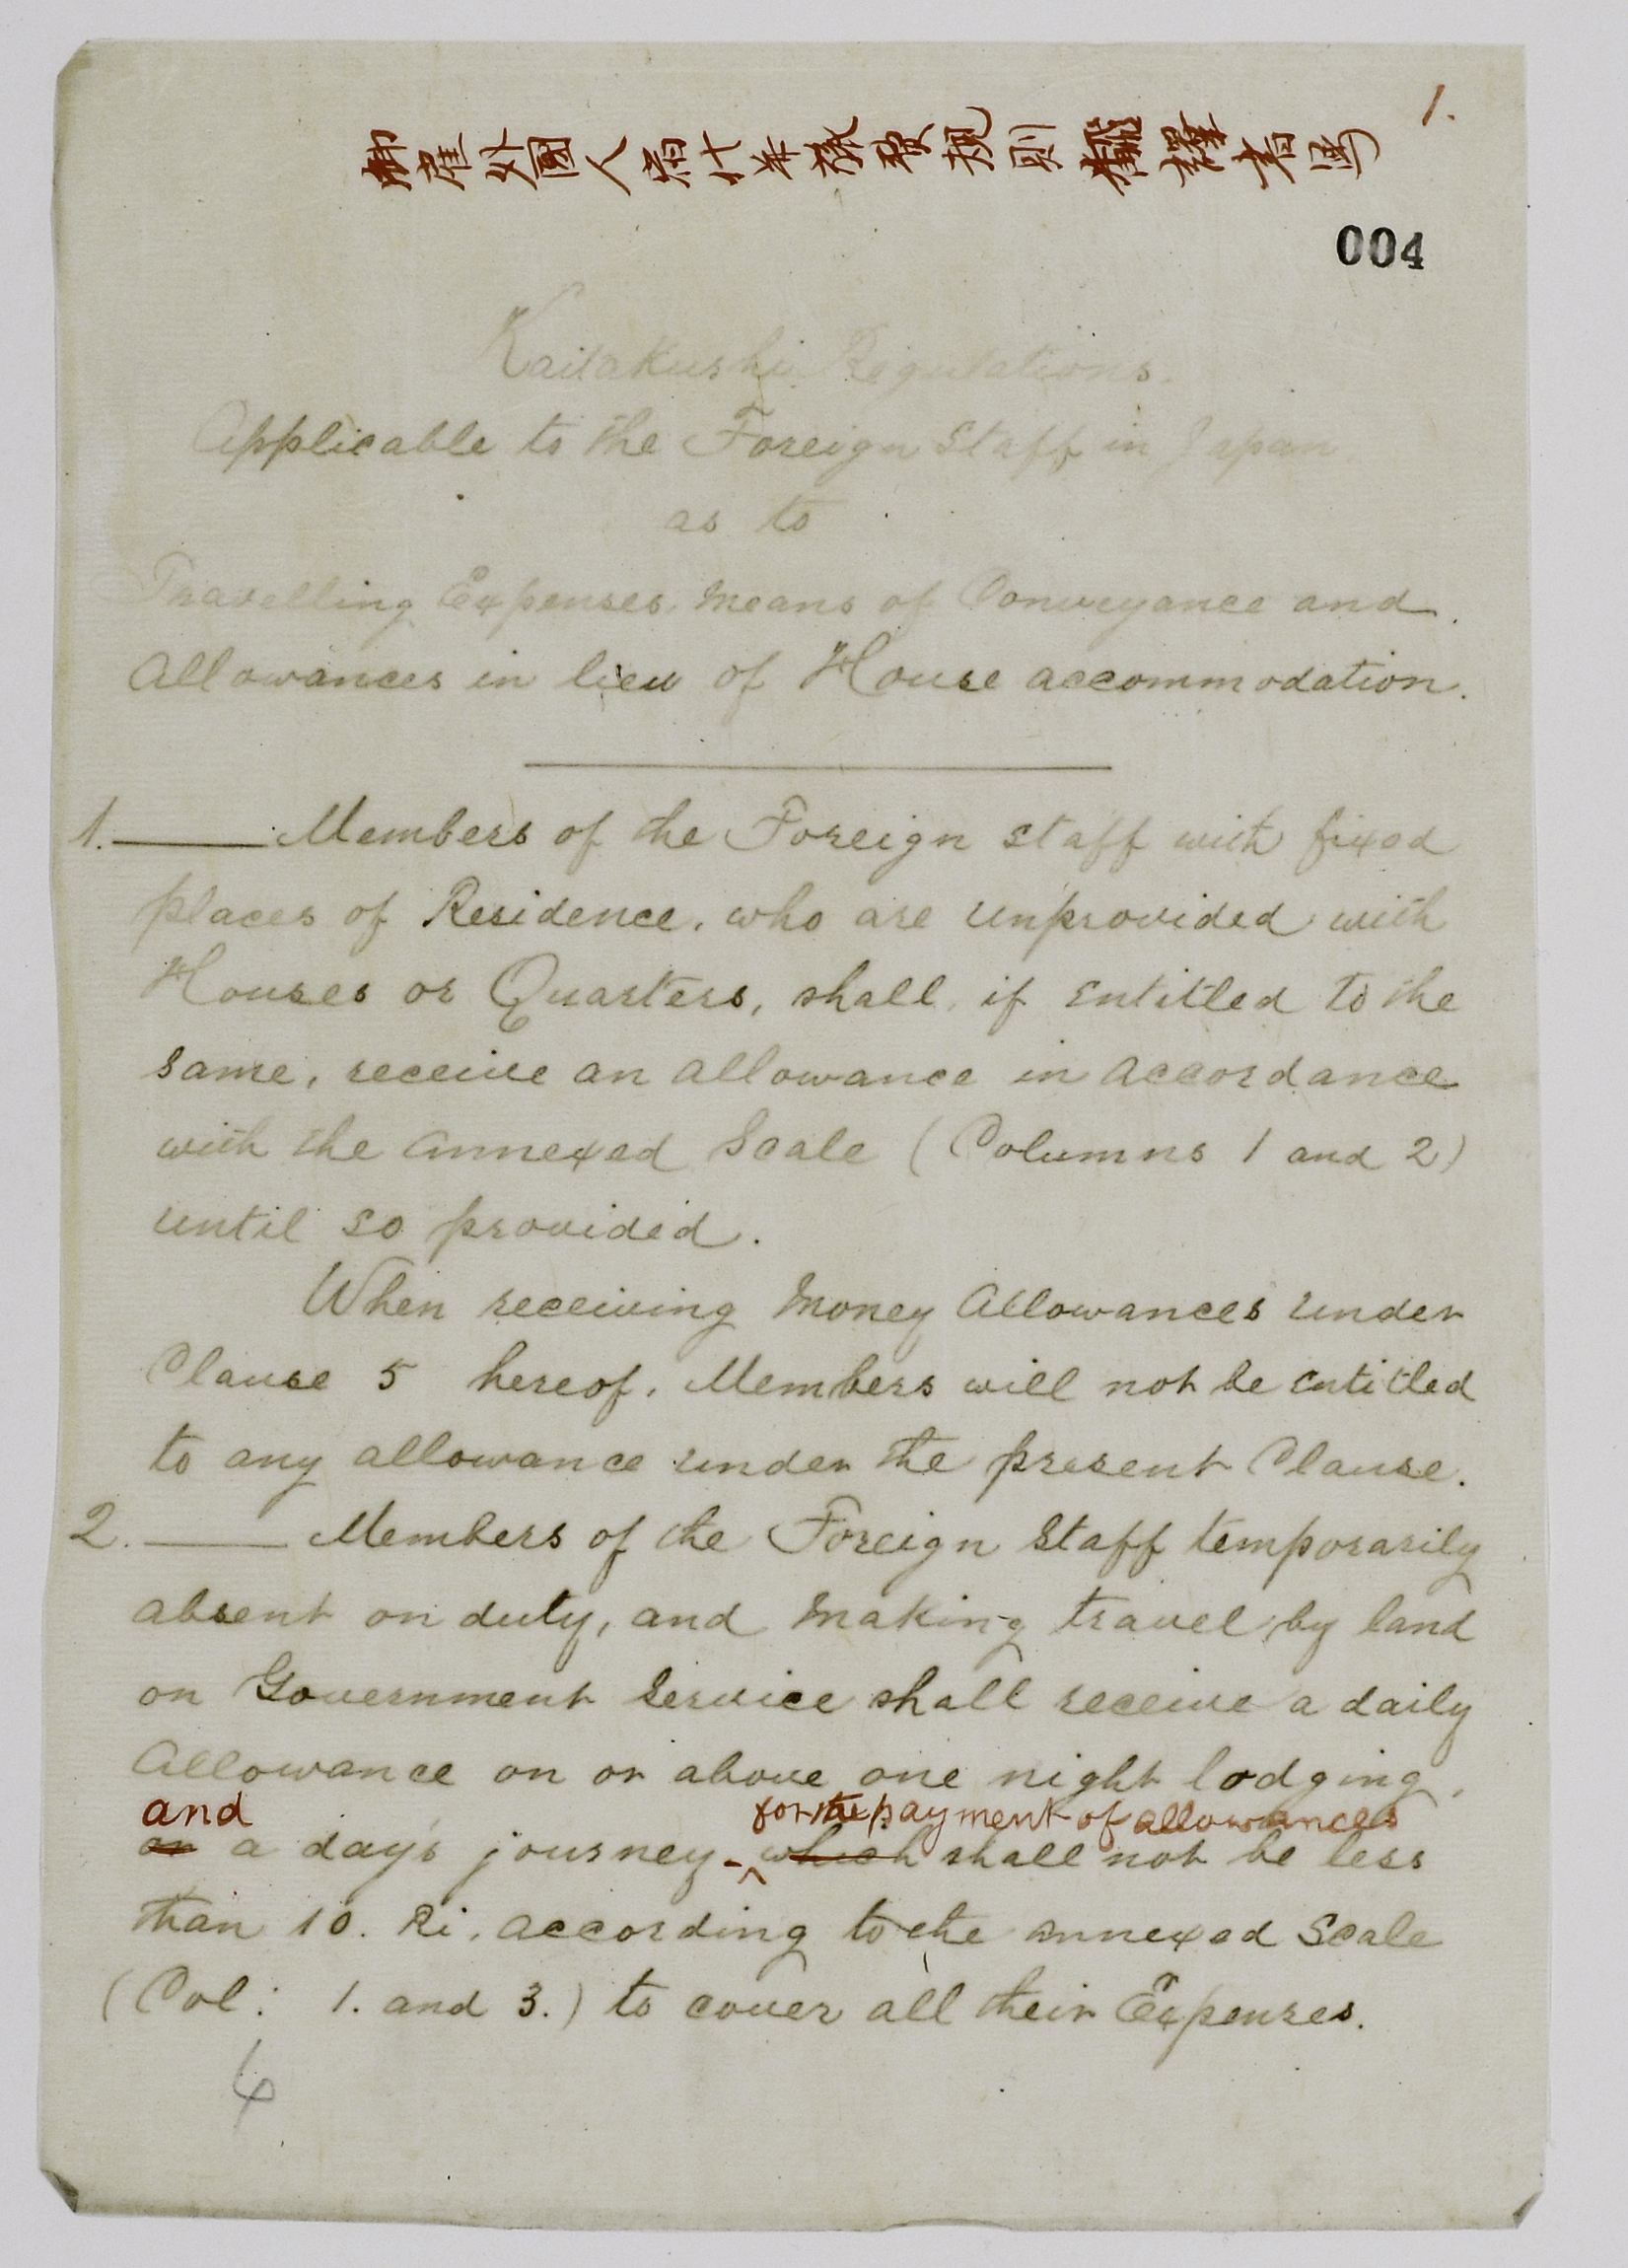 1.
御雇外國人宿什並旅費規則飜譯書寫
004
Kaitakushi Regulations.
Applicable to the Foreign Staff in Japan
as to
Travelling Expenses, Means of Conveyance and
Allowances in lieu of House accommodation.
1. Members of the Foreign Staff with fixed
places of Residence, who are unprovided with
Houses or Quarters, shall, if entitled to the
same, receive an allowance in accordance
with the annexed Scale (Columns 1 and 2)
until so provided.
When receiving Money Allowances under
Clause 5 hereof, Members will not be entitled
to any allowance under the present Clause.
2. Members of the Foreign Staff temporarily
absent on duty, and making travel by land
on Government Service shall receive a daily
Allowance on or above one night lodging,
and for the payment of allowances
or a day's journey - which shall not be less
than 10. Ri, according to the annexed Scale
(Col: 1. and 3.) to cover all their Expenses.